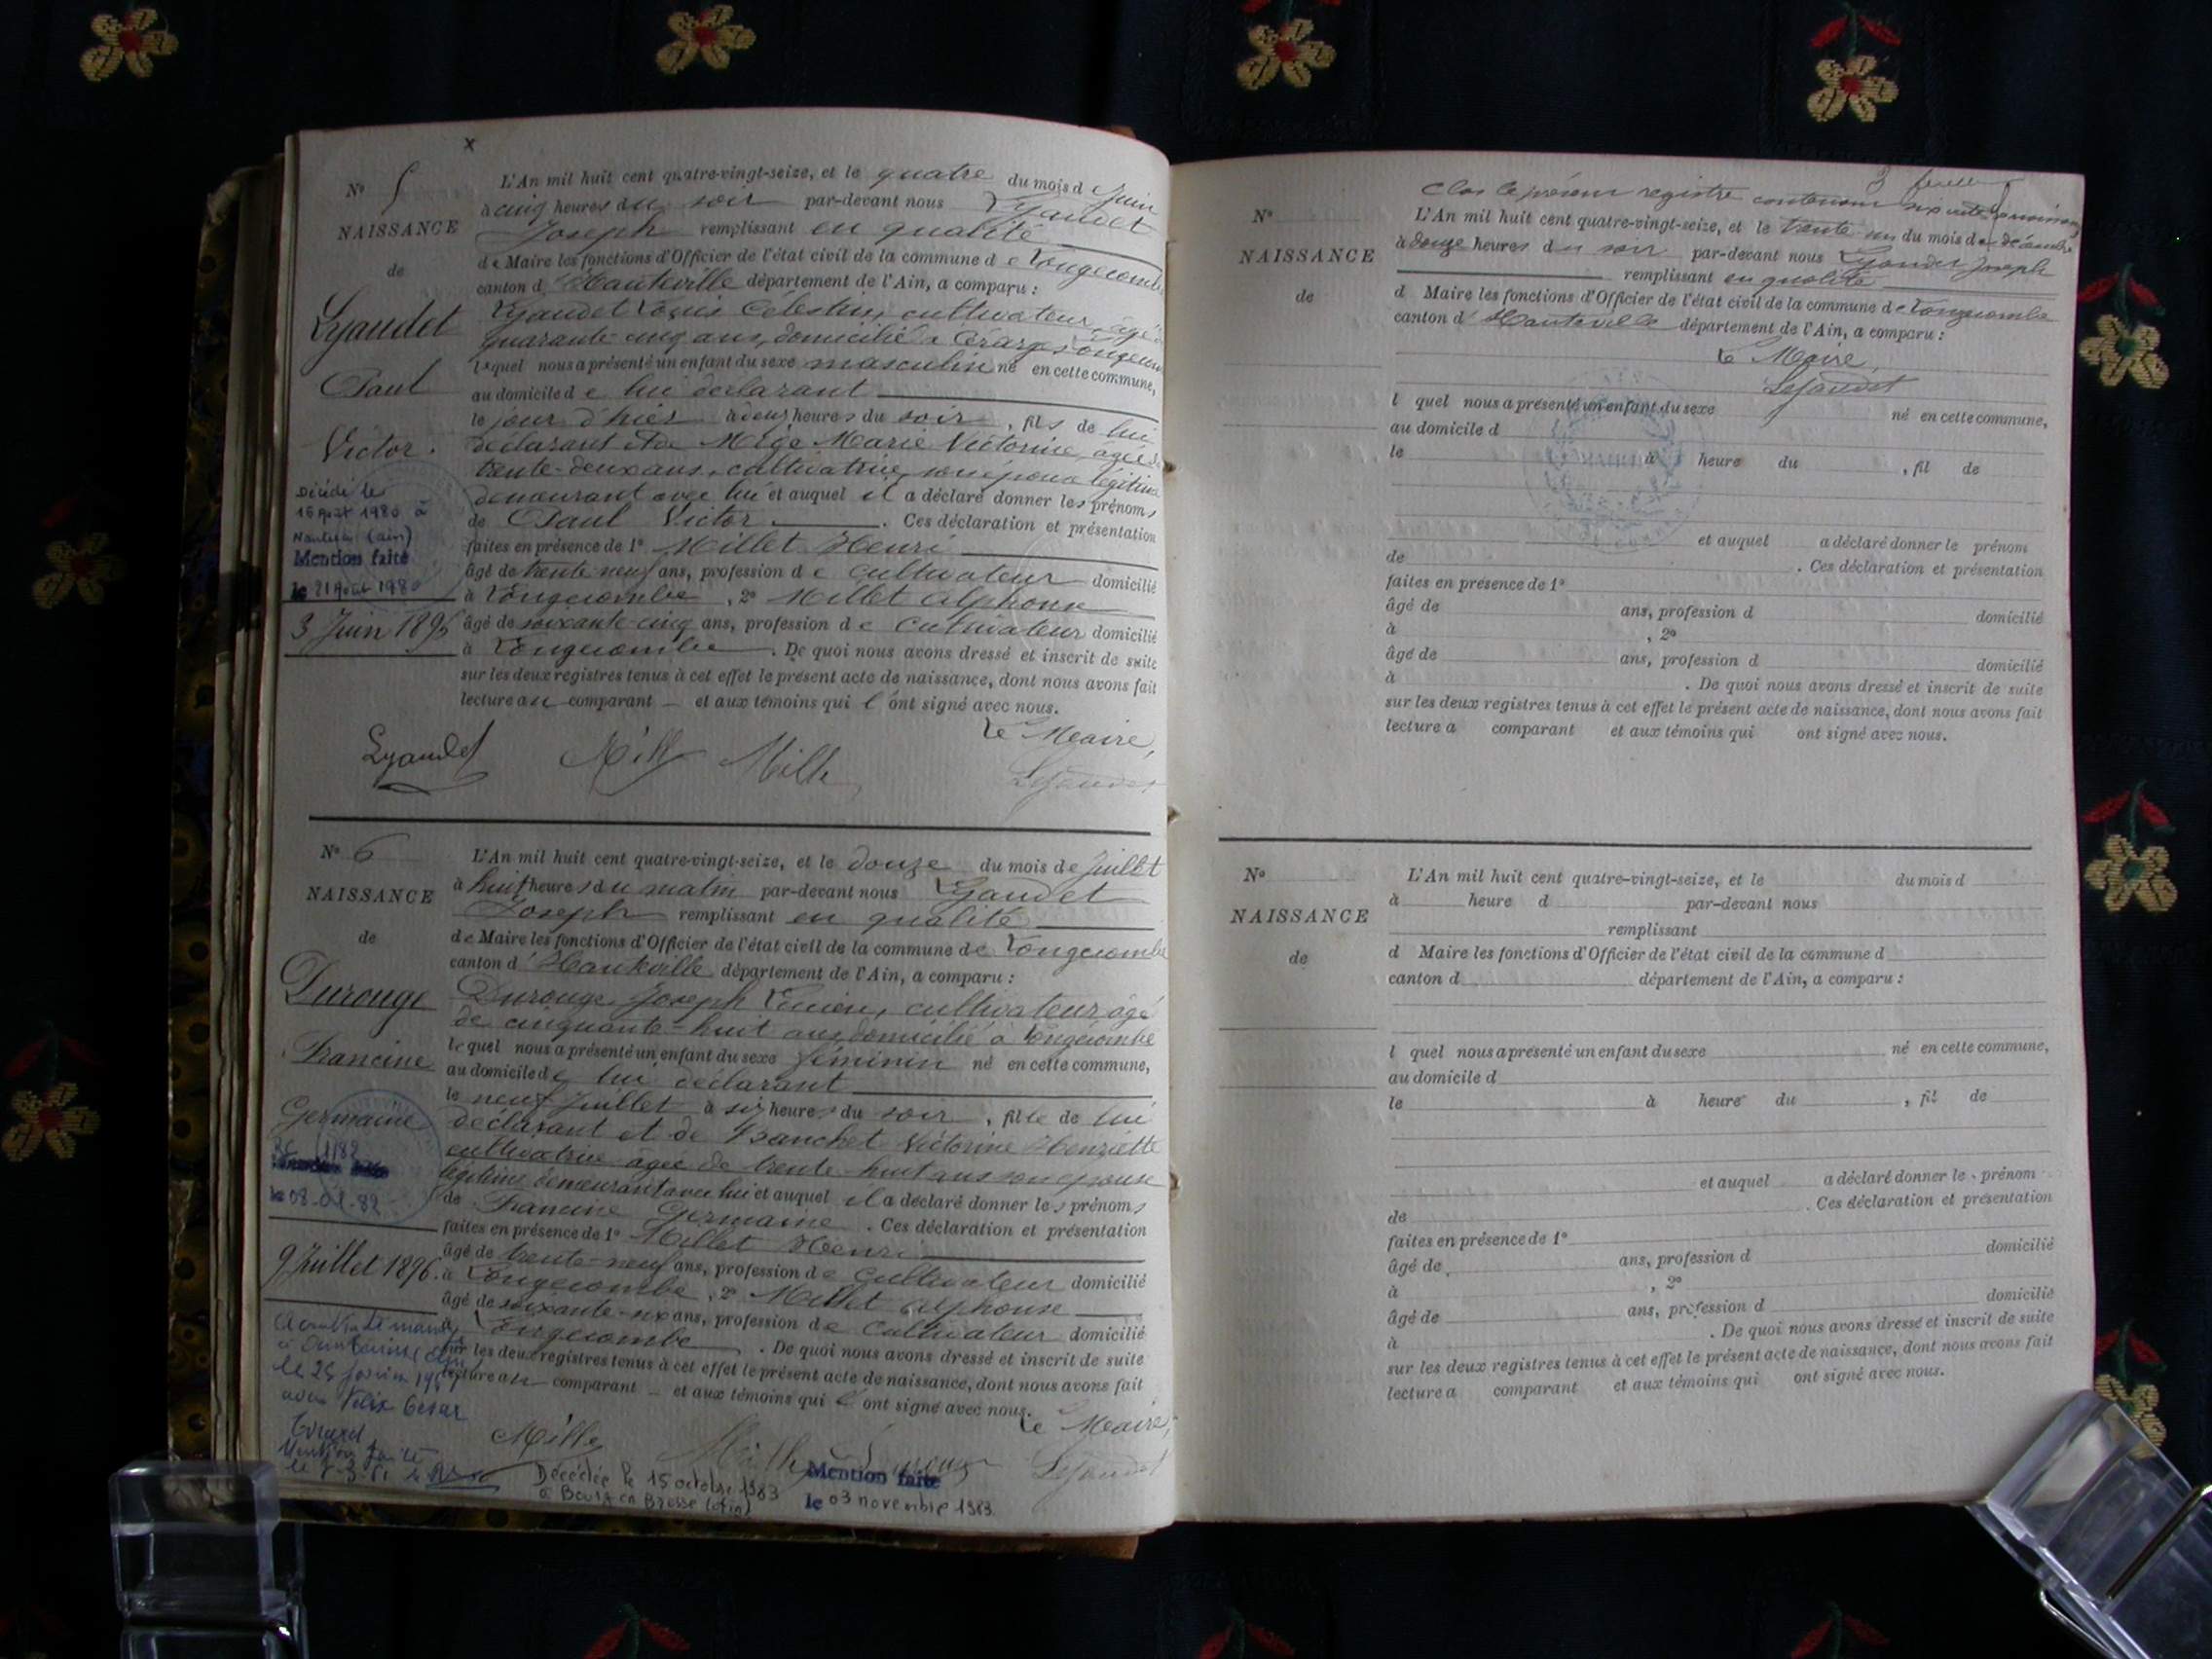 x
N° 5
NAISSANCE
de
Lyaudet
Paul
Victor.
Décédé le
16 Août 1980 à
Nantua (ain)
Mention faite
le 21 Août 1980
3 Juin 1896
L'An mil huit cent quatre-vingt-seize, et le quatre du mois de Juin
à cinq heures du soir par-devant nous Lyaudet
Joseph remplissant en qualité
de Maire les fonctions d'Officier de l'état civil de la commune de Longecombe
canton d'Hauteville département de l'Ain, a comparu :
Lyaudet Louis Célestin, cultivateur, âgé de
quarante-cinq ans, domicilié à
lequel nous a présenté un enfant du sexe masculin né en cette commune,
au domicile de lui déclarant
le jour d'hier à deux heures du soir, fils de lui
déclarant et de Marie Victorine, âgée de
trente-deux ans, cultivatrice, son épouse légitime
demeurant avec lui et auquel il a déclaré donner les prénoms
de Paul Victor. Ces déclaration et présentation
faites en présence de 1° Millet Henri
âgé de trente-neuf ans, profession de cultivateur domicilié
à Longecombe, 2° Millet Alphonse
âgé de soixante-cinq ans, profession de cultivateur domicilié
à Longecombe. De quoi nous avons dressé et inscrit de suite
sur les deux registres tenus à cet effet le présent acte de naissance, dont nous avons fait
lecture au comparant et aux témoins qui l'ont signé avec nous.
Le Maire,
Lyaudet Millet Millet Lyaudet
N° 6
NAISSANCE
de
Durouge
Francine
Germaine
RC 1/82
le 08-01-82
9 Juillet 1896.
L'An mil huit cent quatre-vingt-seize, et le douze du mois de Juillet
à huit heures du matin par-devant nous Lyaudet
Joseph remplissant en qualité
de Maire les fonctions d'Officier de l'état civil de la commune de Longecombe
canton d'Hauteville département de l'Ain, a comparu :
Durouge Joseph Lucien, cultivateur âgé
de cinquante-huit ans domicilié à Longecombe
lequel nous a présenté un enfant du sexe féminin né en cette commune,
au domicile de lui déclarant
le neuf Juillet à six heures du soir, fille de lui
déclarant et de Banchet Victorine Henriette
cultivatrice âgée de trente-huit ans son épouse
légitime demeurant avec lui et auquel il a déclaré donner les prénoms
de Francine Germaine. Ces déclaration et présentation
faites en présence de 1° Millet Henri
âgé de trente-neuf ans, profession de cultivateur domicilié
à Longecombe, 2° Millet Alphonse
âgé de soixante-six ans, profession de cultivateur domicilié
à Longecombe. De quoi nous avons dressé et inscrit de suite
sur les deux registres tenus à cet effet le présent acte de naissance, dont nous avons fait
lecture au comparant et aux témoins qui l'ont signé avec nous.
Le Maire,
Millet Millet Durouge Lyaudet
le 25
avec Félix César
Mention faite
Décédée le 15 octobre 1983
à Bourg en Bresse (Ain)
Mention faite
le 03 novembre 1983.
Clos le présent registre contenant six actes
N°
NAISSANCE
de
L'An mil huit cent quatre-vingt-seize, et le trente-un du mois de décembre
à douze heures du soir par-devant nous Lyaudet Joseph
remplissant en qualité
d Maire les fonctions d'Officier de l'état civil de la commune de Longecombe
canton d'Hauteville département de l'Ain, a comparu :
Le Maire,
Lyaudet
l quel nous a présenté un enfant du sexe né en cette commune,
au domicile d
le à heure du , fil de
et auquel a déclaré donner le prénom
de . Ces déclaration et présentation
faites en présence de 1°
âgé de ans, profession d domicilié
à , 2°
âgé de ans, profession d domicilié
à . De quoi nous avons dressé et inscrit de suite
sur les deux registres tenus à cet effet le présent acte de naissance, dont nous avons fait
lecture a comparant et aux témoins qui ont signé avec nous.
N°
NAISSANCE
de
L'An mil huit cent quatre-vingt-seize, et le du mois d
à heure d par-devant nous
remplissant
d Maire les fonctions d'Officier de l'état civil de la commune d
canton d département de l'Ain, a comparu :
l quel nous a présenté un enfant du sexe né en cette commune,
au domicile d
le à heure du , fil de
et auquel a déclaré donner le prénom
de . Ces déclaration et présentation
faites en présence de 1°
âgé de ans, profession d domicilié
à , 2°
âgé de ans, profession d domicilié
à . De quoi nous avons dressé et inscrit de suite
sur les deux registres tenus à cet effet le présent acte de naissance, dont nous avons fait
lecture a comparant et aux témoins qui ont signé avec nous.